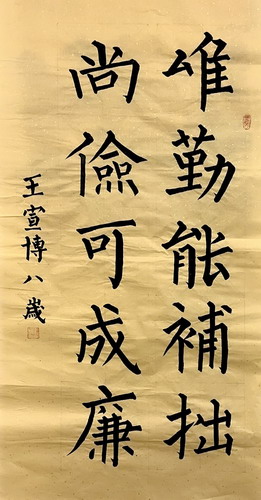 唯勤能補拙
尚儉可成廉
王宣博八歲